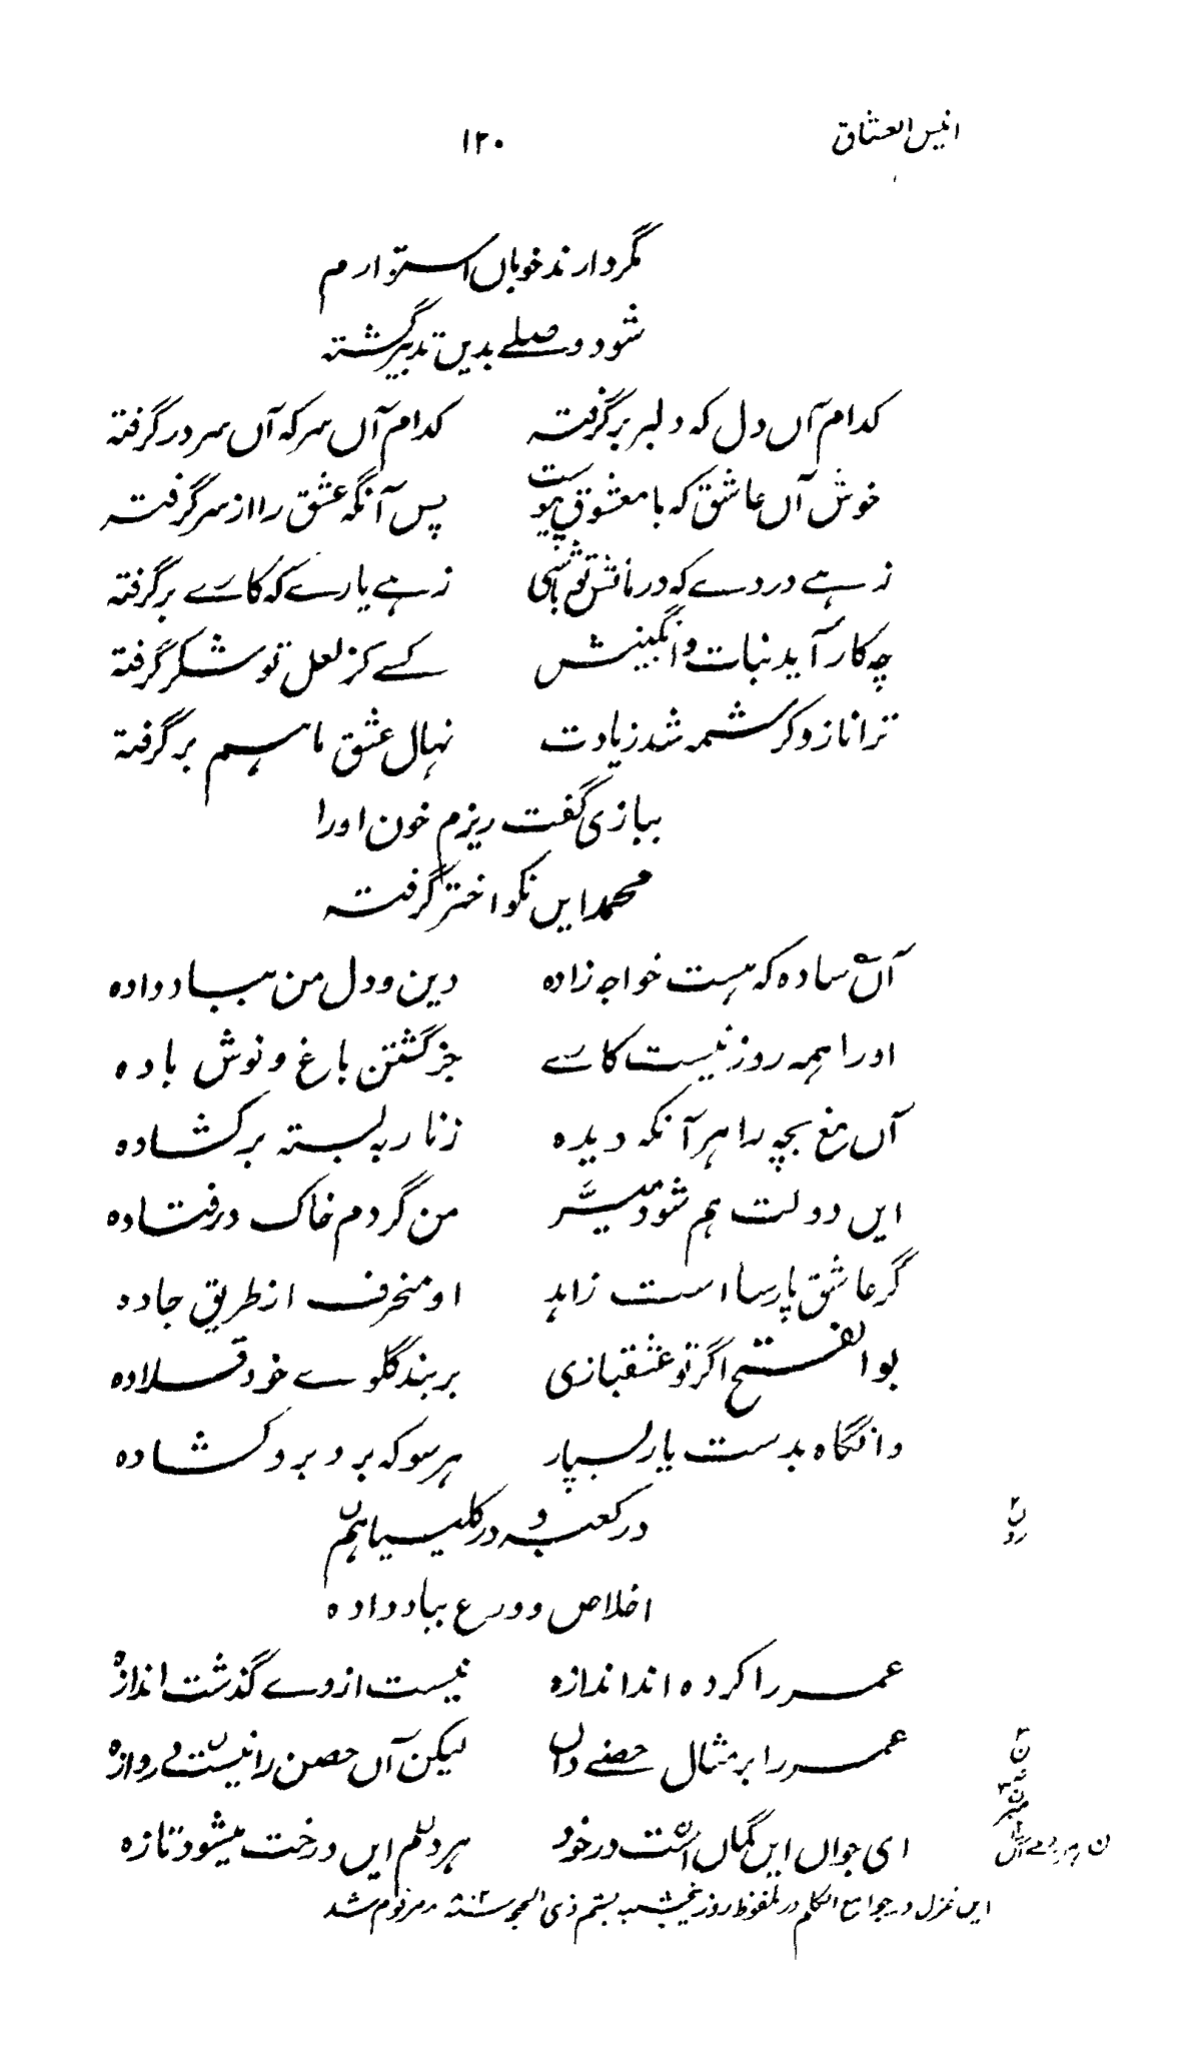 انیس العشاق ۱۲۰
مگر دارند خوباں استوارم
شود وصلے بدیں تدبیر گشتہ
کدام آں دل کہ دلبر بر گرفتہ کدام آں سر کہ آں سر در گرفتہ
خوش آں عاشق کہ با معشوق پیوست پس آنگہ عشق را از سر گرفتہ
زہے دردے کہ درمانش تو باشی زہے یارے کہ کاسے بر گرفتہ
چہ کار آید نبات و انگبینش کسے کز لعل تو شکر گرفتہ
ترا ناز و کرشمہ شد زیادت نہال عشق ما ہم بر گرفتہ
ببازی گفت ریزم خون او را
محمد ایں نکو اختر گرفتہ
آں سادہ کہ ہست خواجہ زادہ دین و دل من بباد دادہ
اورا ہمہ روز نیست کاسے جز گشتن باغ و نوش بادہ
آں مغ بچہ را ہر آنکہ دیدہ زنار بہ بستہ بر کشادہ
ایں دولت ہم شود میسّر من گردم خاک در فتادہ
گر عاشق پارسا است زاہد او منحرف از طریق جادہ
بو الفتح اگر تو عشقبازی بر بند گلوے خود قلادہ
وانگاہ بدست یار بسپار ہر سو کہ برد برو کشادہ
در کعبہ و در کلیسیا ہم
ن رو
اخلاص و ورع بباد دادہ
عمر را کردہ اند اندازہ نیست از وے گذشت اندازہ
عمر را بر مثال حصنے داں لیکن آں حصن را نیست دروازہ
ن
ای جواں ایں گماں است در خود ہر دلم ایں درخت میشود تازہ
ایں غزل در جوامع الکلم در ملفوظ روز پنجشنبہ بستم ذی الحجہ سنہ ۸۰۲ مرقوم شد